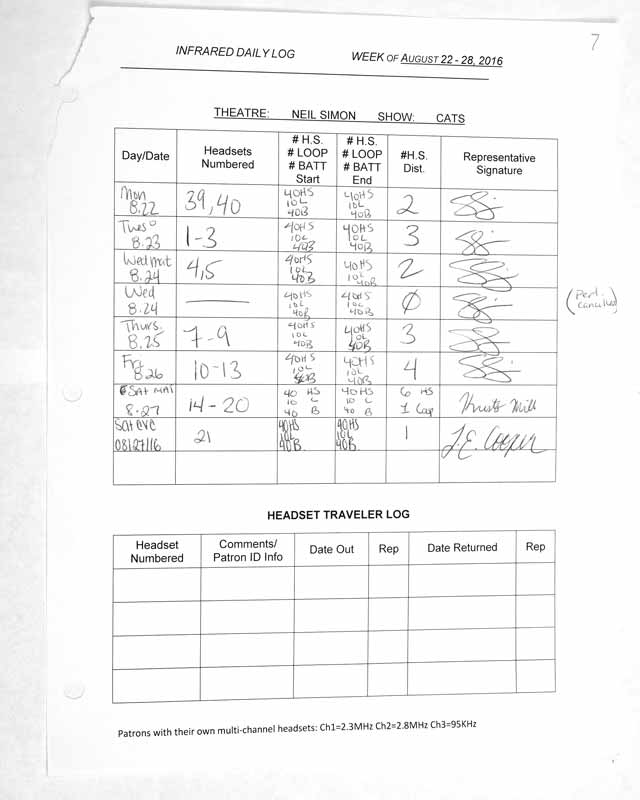 7
INFRARED DAILY LOG WEEK OF AUGUST 22 - 28, 2016
THEATRE: NEIL SIMON SHOW: CATS
Day/Date Headsets Numbered # H.S. # LOOP # BATT Start # H.S. # LOOP # BATT End #H.S. Dist. Representative Signature
Mon 8.22 39,40 40HS 10L 40B 40HS 10L 40B 2
Tues 8.23 1-3 40HS 10L 40B 40HS 10L 40B 3
Wed mat 8.24 4,5 40HS 10L 40B 40HS 10L 40B 2
Wed 8.24 — 40HS 10L 40B 40HS 10L 40B Ø (Perf.
Thurs. 8.25 7-9 40HS 10L 40B 40HS 10L 40B 3
Fri 8.26 10-13 40HS 10L 40B 40HS 10L 40B 4
SAT MAT 8.27 14-20 40 HS 10 L 40 B 40 HS 10 L 40 B 6 HS 1 Loop
Sat eve 08/27/16 21 40HS 10L 40B 40HS 10L 40B 1 J.E. Cooper
HEADSET TRAVELER LOG
Headset Numbered Comments/ Patron ID Info Date Out Rep Date Returned Rep
Patrons with their own multi-channel headsets: Ch1=2.3MHz Ch2=2.8MHz Ch3=95KHz